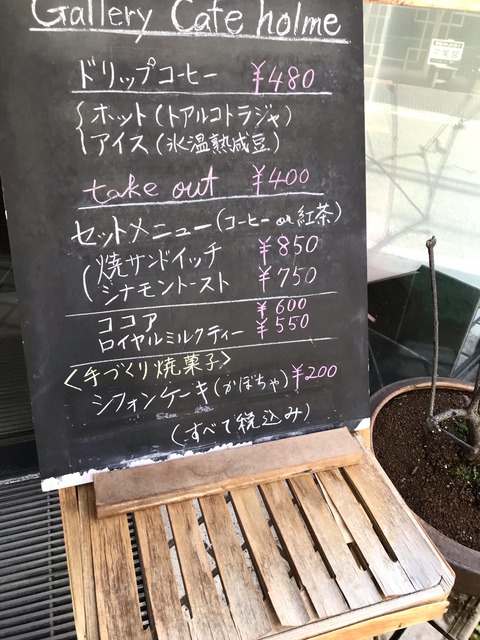 Gallery Cafe holme
ドリップコーヒー ¥480
ホット(トアルコトラジャ)
アイス(氷温熟成豆)
take out ¥400
セットメニュー(コーヒー or 紅茶)
焼サンドイッチ ¥850
シナモントースト ¥750
ココア ¥600
ロイヤルミルクティー ¥550
<手づくり焼菓子>
シフォンケーキ(かぼちゃ) ¥200
(すべて税込み)